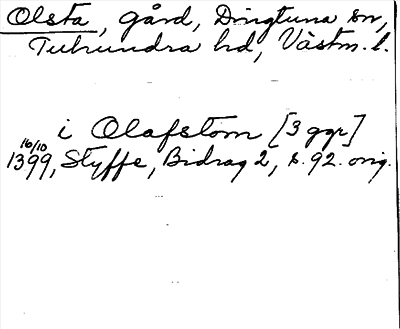 Olsta, gård, Dingtuna sn,
Tuhundra hd, Västm. l.
i Olafstom [3 ggr]
16/10
1399, Styffe, Bidrag 2, s. 92. orig.